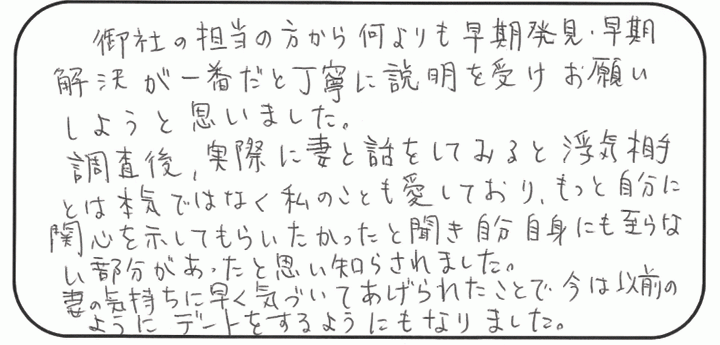 御社の担当の方から何よりも早期発見・早期
解決が一番だと丁寧に説明を受けお願い
しようと思いました。
調査後、実際に妻と話をしてみると浮気相手
とは本気ではなく私のことも愛しており、もっと自分に
関心を示してもらいたかったと聞き自分自身にも至らな
い部分があったと思い知らされました。
妻の気持ちに早く気づいてあげられたことで今は以前の
ようにデートをするようにもなりました。